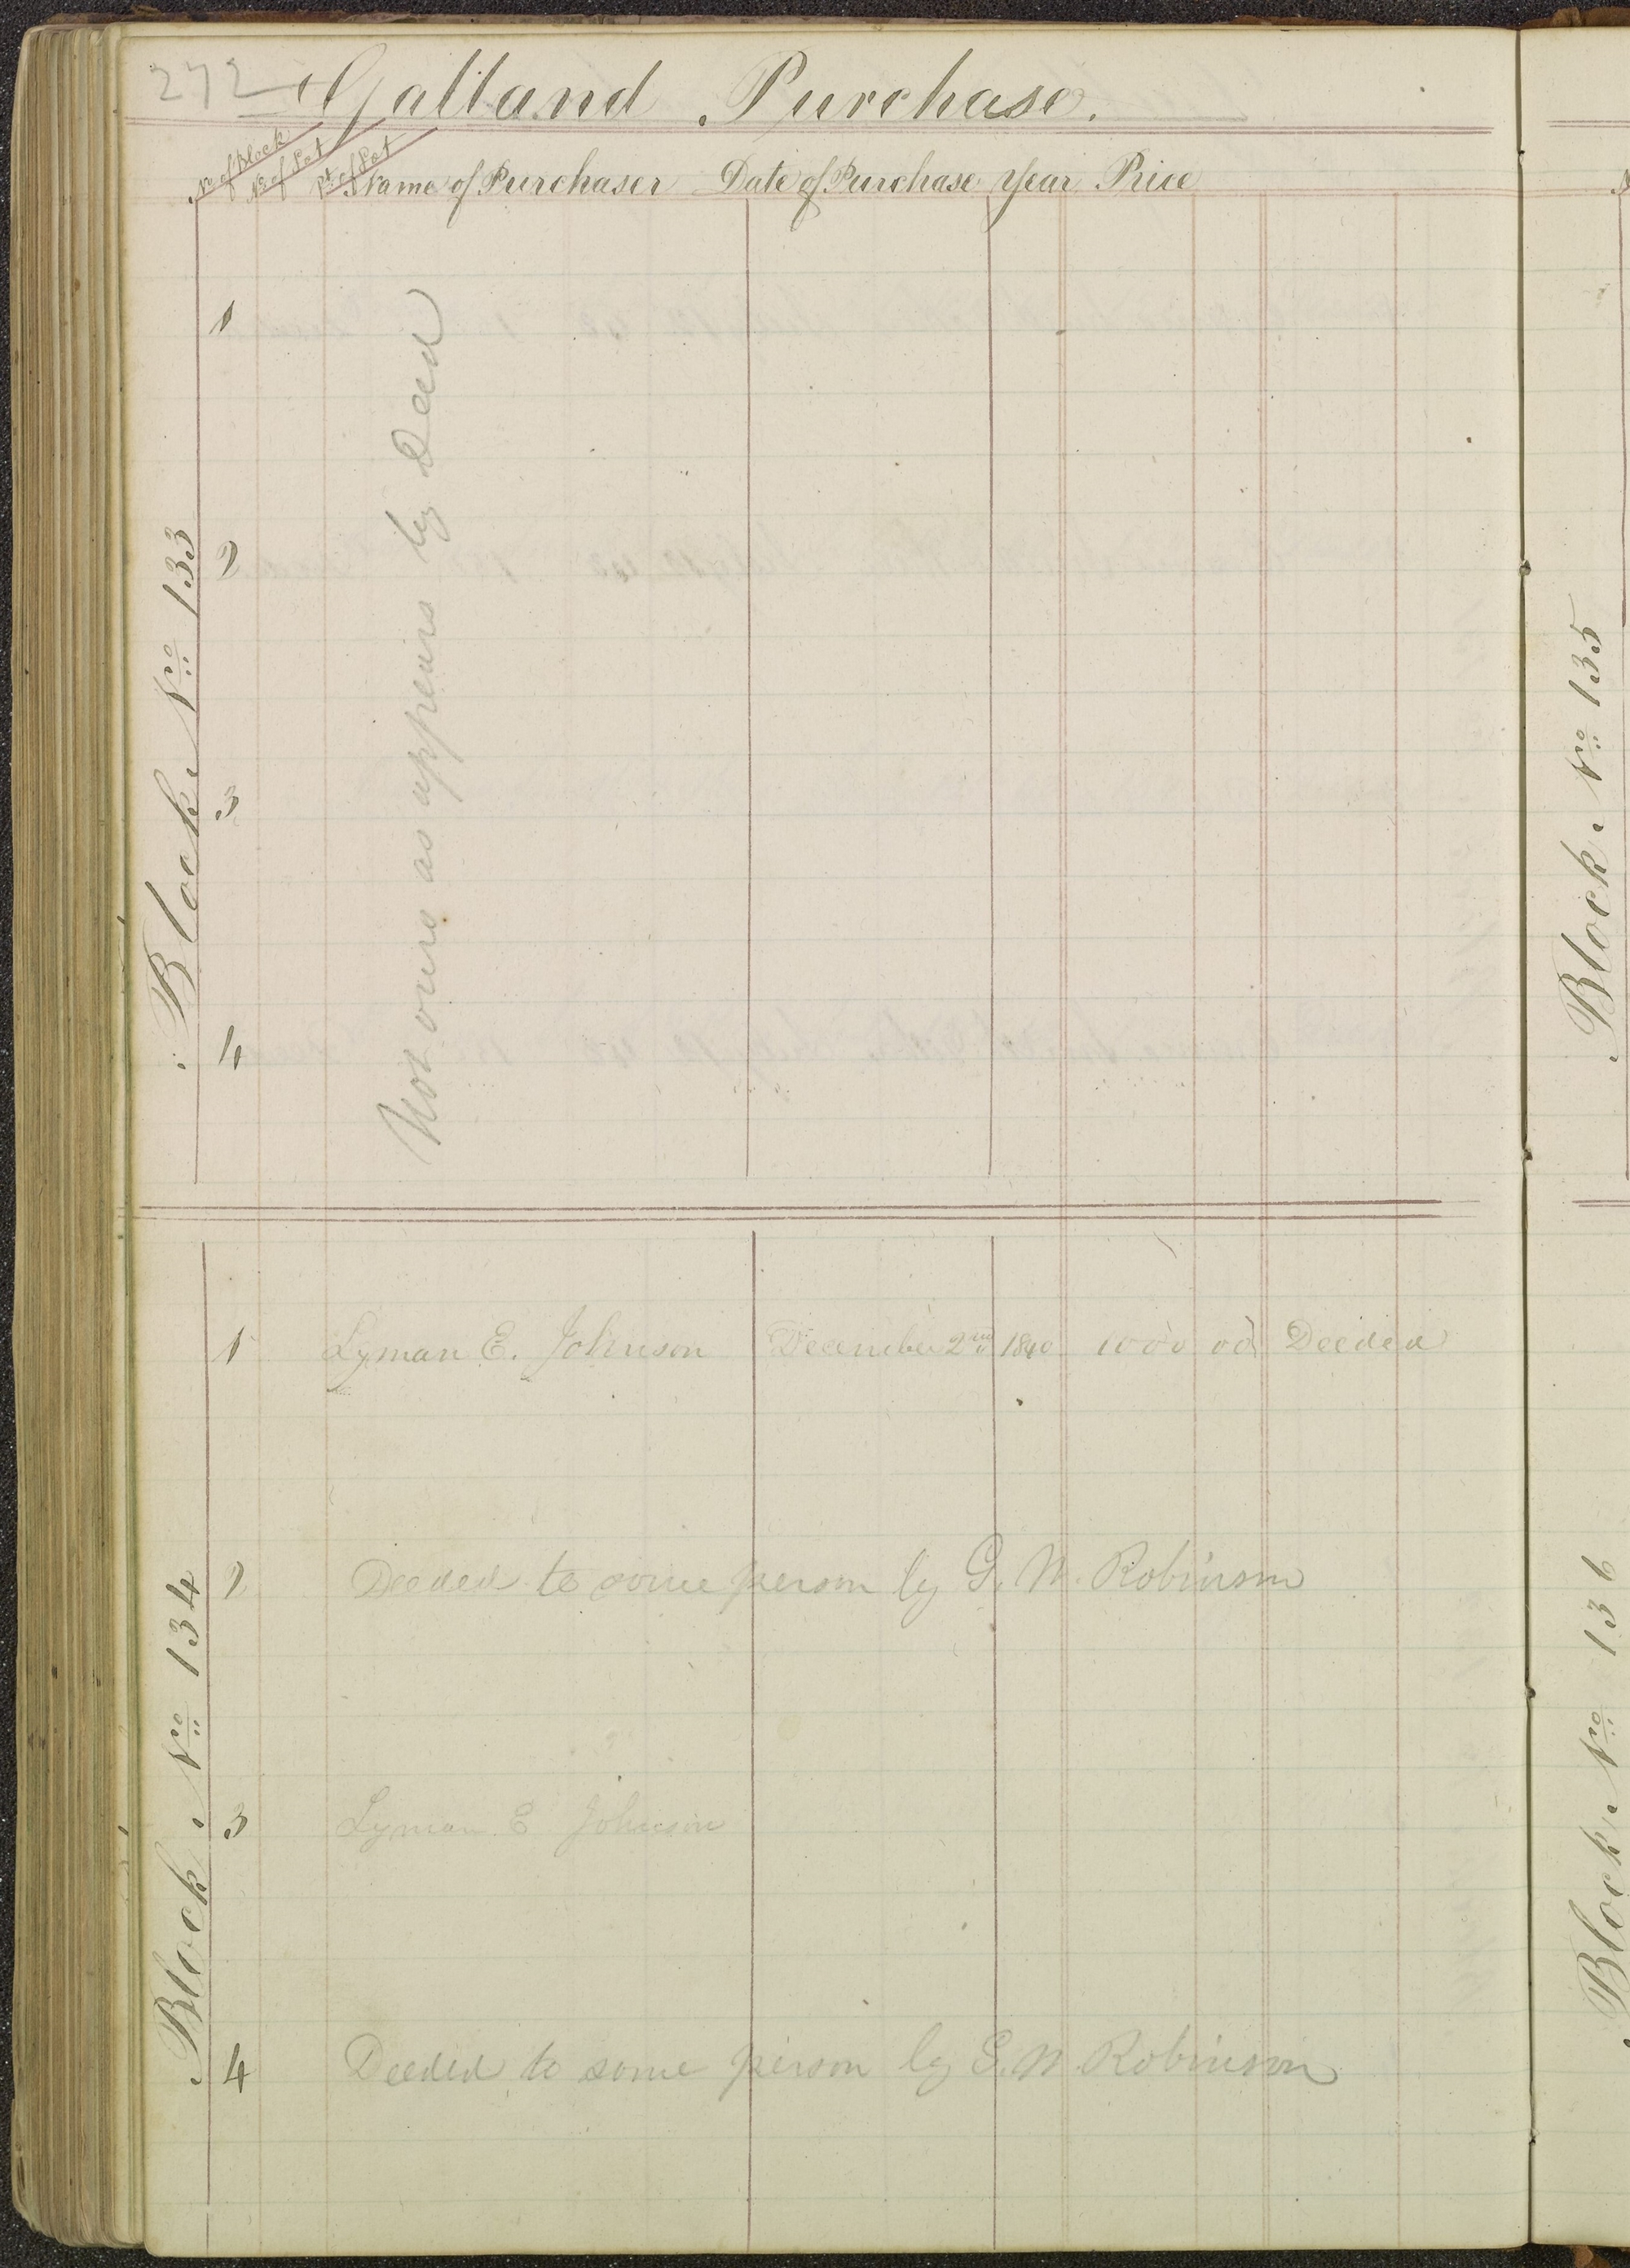 272 Galland Purchase.
No of Block No of Lot Pt of Lot Name of Purchaser Date of Purchase Year Price
Block No 133
1
2
3
4
Not ours as appears by Deed
Block No 134
1 Lyman E. Johnson December 2nd 1840 1000 00 Deeded
2 Deeded to some person by G. W. Robinson
3 Lyman E Johnson
4 Deeded to some person by G. W. Robinson
Block No 135
Block No 136